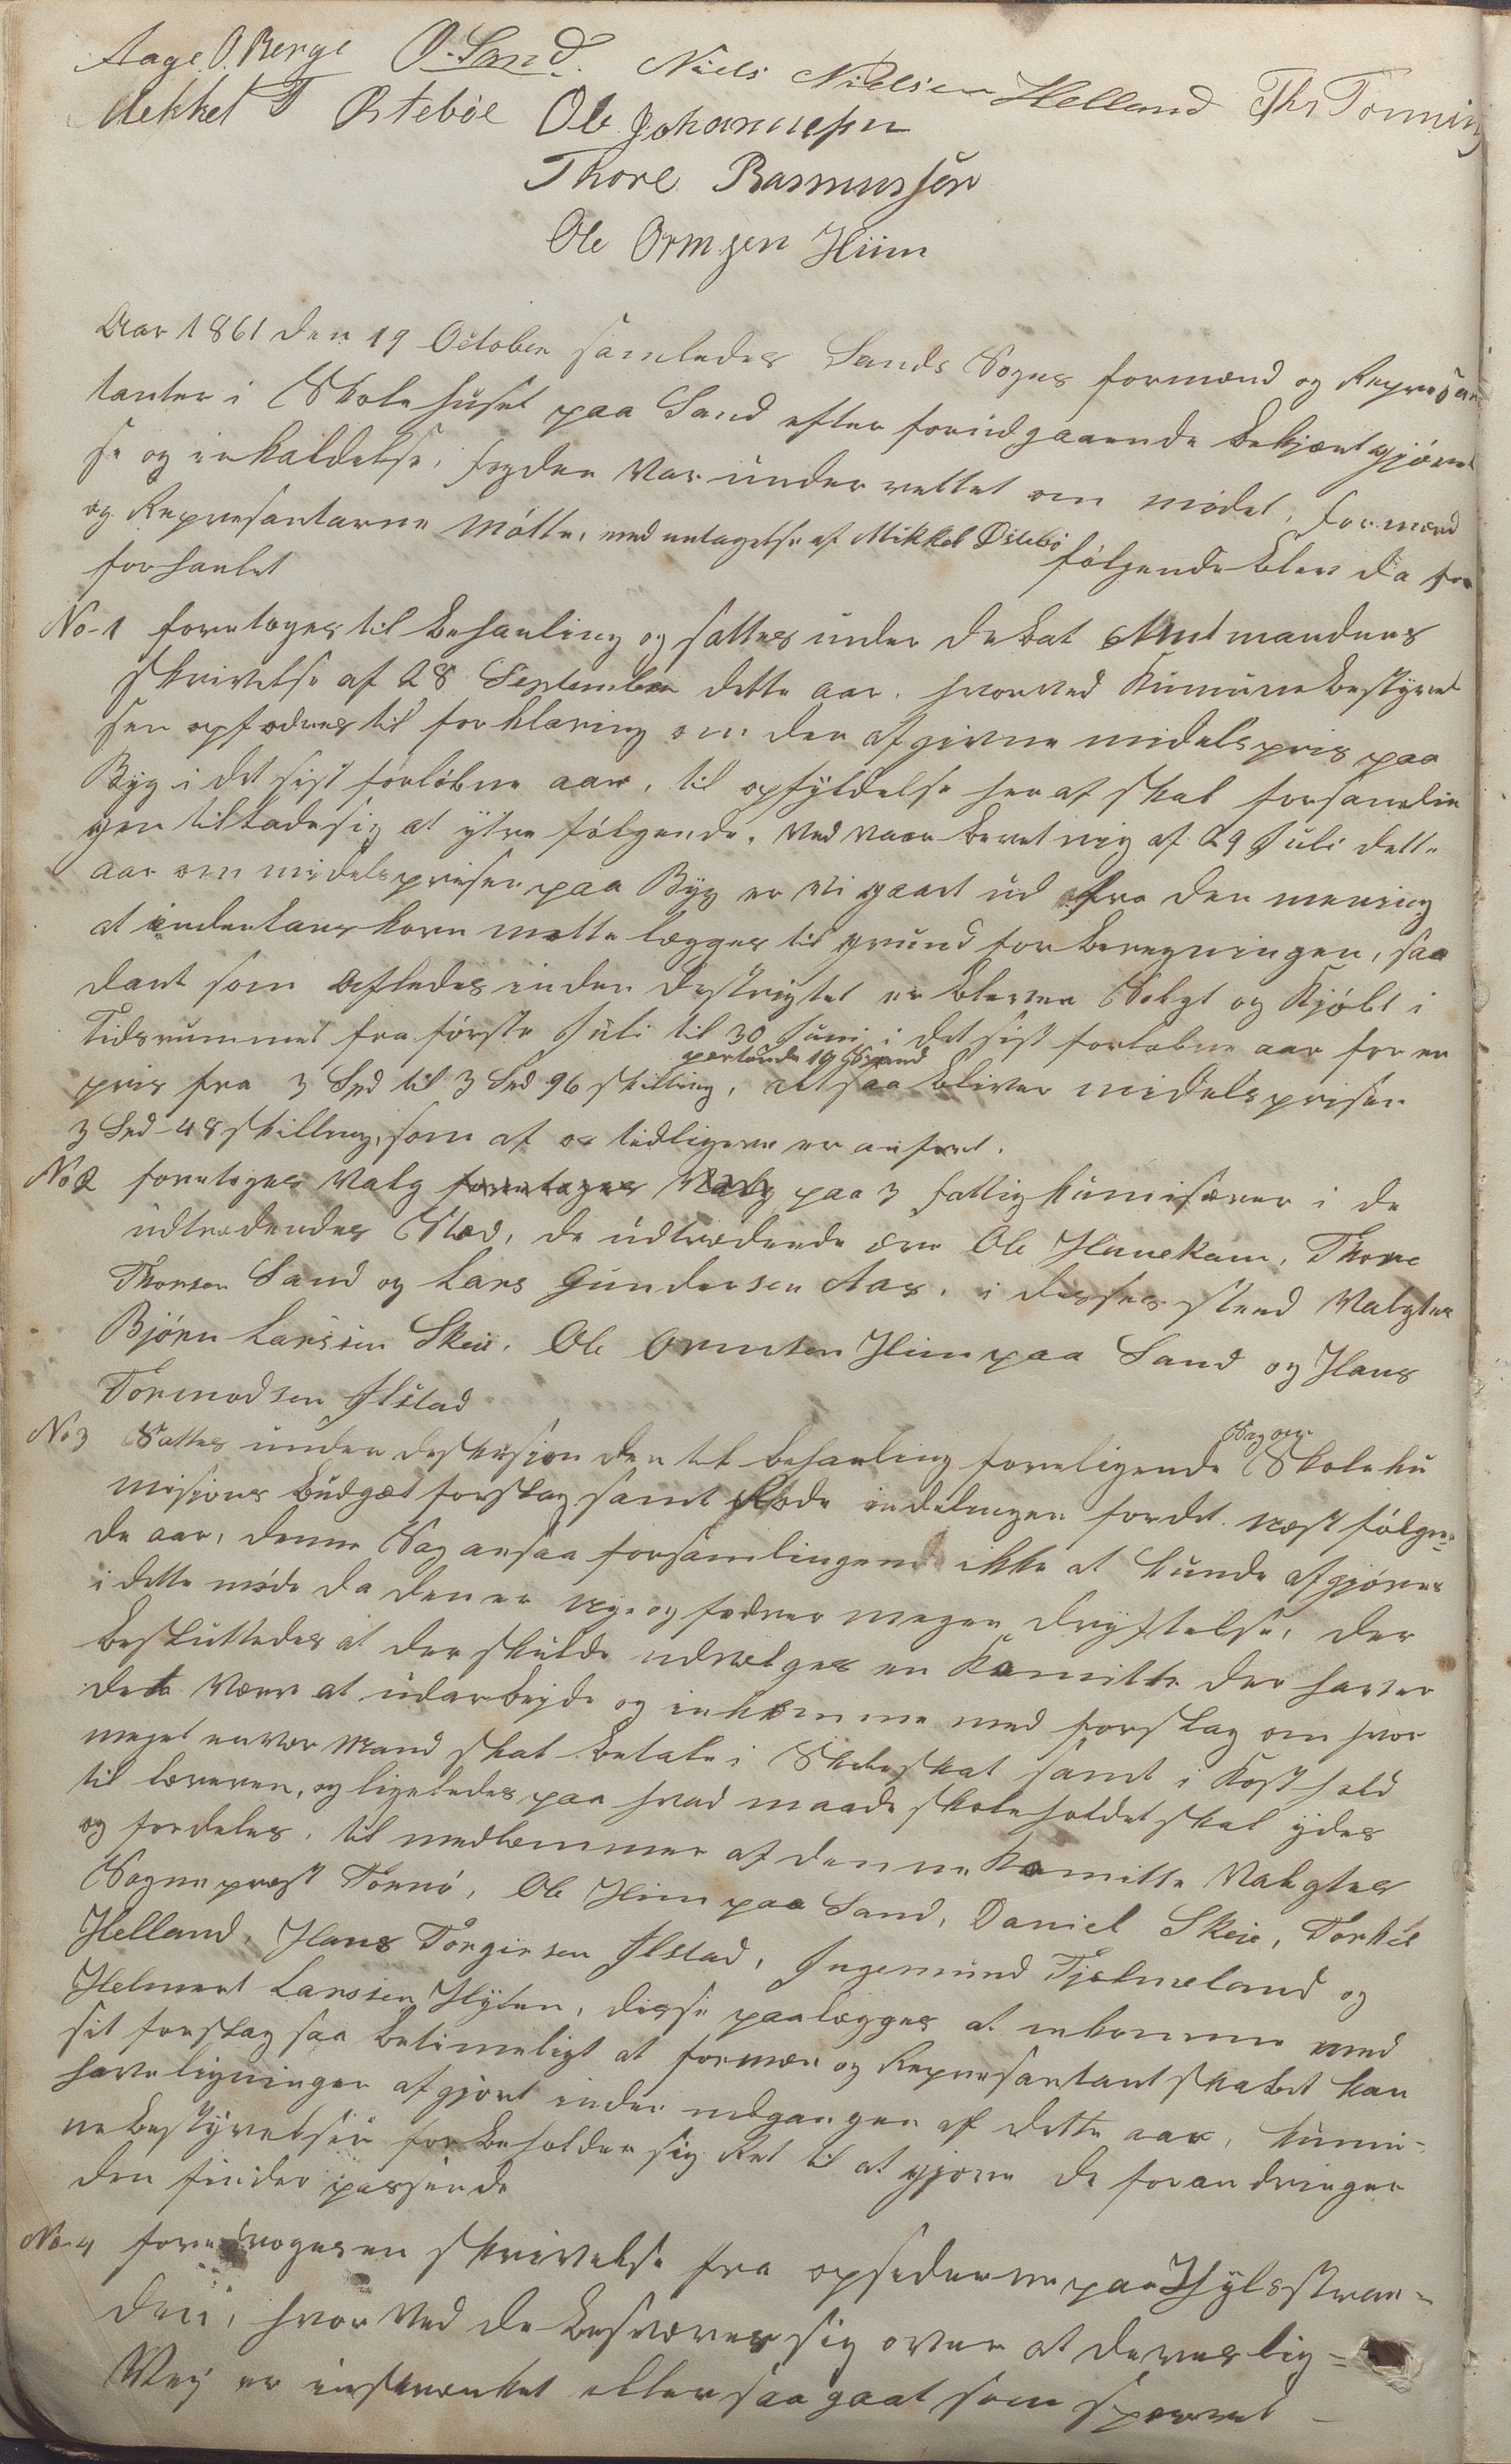 Aage O. Berge O. Sand. Niels Nielsen Helland Ths Tonning
Mekkel T Østebøe Ole Johannesen
Thore Rasmussen
Ole Ormsen Hiim
Aar 1861 den 19 October samledes Sands Sogns formænd og Repræsæn
tanter i Skolehuset paa Sand efter forudgaaende bekjæntgjørel
se og inkaldelse, fogden var underrettet om mødet, formænd
og Represantarne møtte, med untagelse af Mikkel Østebø følgende blev da for
hanlet
No 1 foretoges til behanling og sattes under debat Amtmandens
skrivelse af 28 September dette aar. hvorved Kumunebestyrel
sen opfodres til forklaring om den afgivne midelspris paa
Byg i det sist forløbne aar, til opfyldelse heraf skal forsamlin
gen tillade sig at ytre følgende. Ved vaar beretnig af 29 Juli dette
aar om midelsprisen paa Byg er vi gaaet ud fra den mening
at indenlans korn motte lægges til grund for beregningen, saa
dant som afledes inden destrigtet er bleven Solgt og Kjøbt i
Tidsrummet fra første Juli til 30 Juni i det sist forløbne aar for en
pris fra 3 Spd til 3 Spd 96 skilling, pertønde altsaa bliver midelsprisen
3 Spd 48 skilling, som af os tidligere er anført.
No 2 foretoges Valg foretoges Valg paa 3 fattigkumisærer i de
udtrædendes Stæd, de udtrædende ere Ole Hiimekam, Thore
Thorsen Sand og Lars Gundersen Aas, i disses stæd Valgtes
Bjørn Larssen Skeie, Ole Ormsen Hiim paa Sand og Hans
Tormodsen Ilstad
No 3 Sattes under deskusion den til behanling foreligende Sag om Skoleku
misions budgæt forslag samt Rode indelingen for det næst følgen=
de aar, denne Sag ansaa forsamlingen ikke at kunde afgjøres
i dette møde da den er nye og fodrer megen drøftelse, der
besluttedes at der skulde udvælges en Komitte der haver
det Værv at udarbejde og inkomme med forslag om hvor
meget enver Mand skal betale i Skoleskat samt i Kosthold
til læreren, og ligeledes paa hvad maade skoleholdet skal ydes
og fordeles, til medlemmer af denne Komitte Valgtes
Sogneprest Tornø, Ole Hiim paa Sand, Daniel Skeie, Torkel
Helland, Hans Torgiersen Ilstad, Ingemund Tjelmeland og
Helmert Larssen Hylen, disse paalægges at inkomme med
sit forslag saa betimeligt at formæn og Represantantskabet kan
have ligningen afgjort inden udgangen af dette aar, kumu-
nebestyrelsen forbeholder sig Ret til at gjøre de forandringer
den finder passende
No 4 foredroges en skrivelse fra opsiderne paa Hylsstran=
den, hvorved de besværer sig over at deres lig=
Vej er inskrænket eller saa gaat som sperret